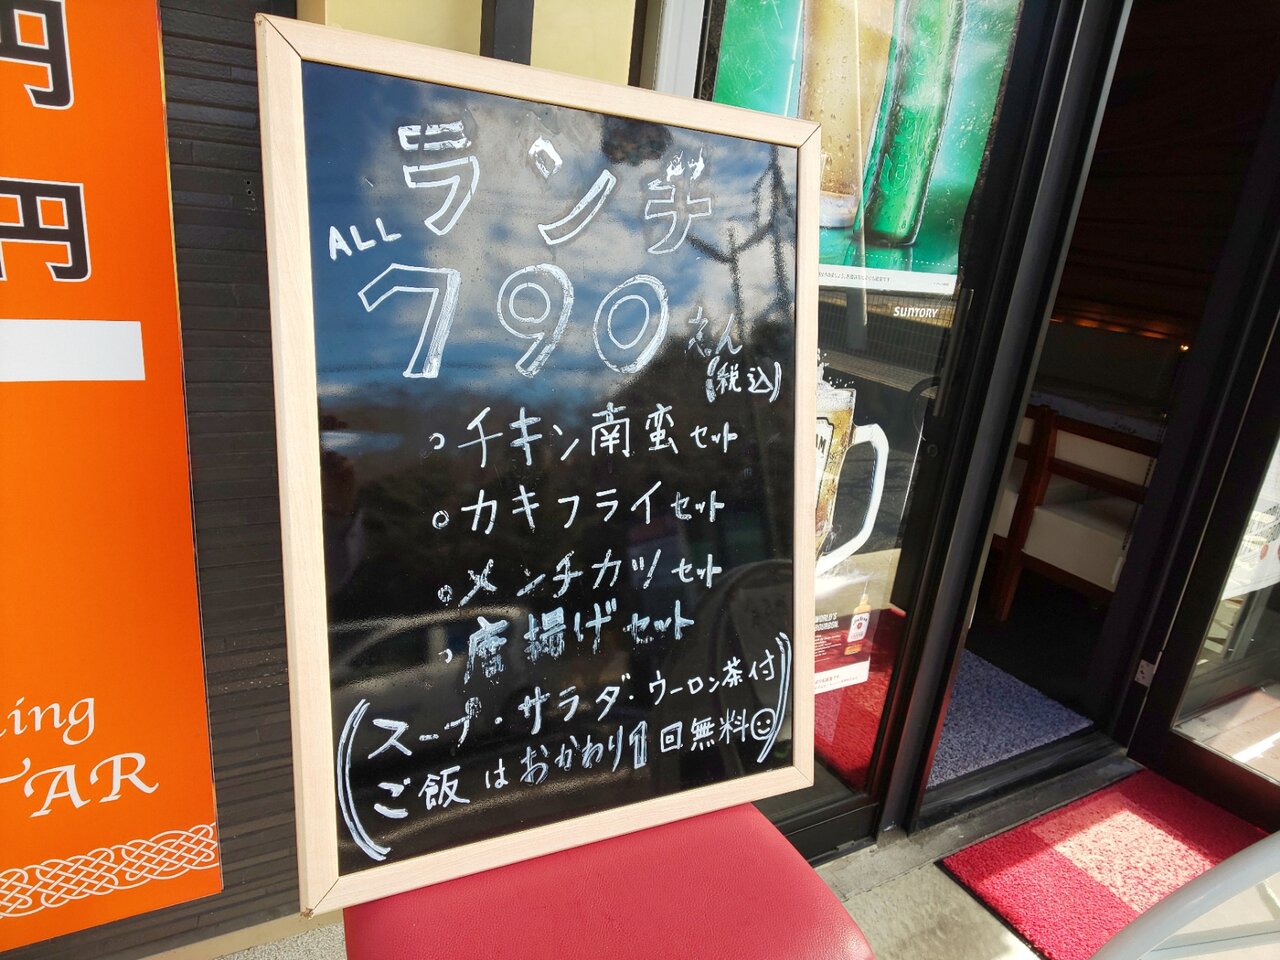 円
円
ning
TAR
ランチ
ALL
790えん
(税込)
○チキン南蛮セット
○カキフライセット
○メンチカツセット
○唐揚げセット
(スープ・サラダ・ウーロン茶付
ご飯はおかわり1回無料☺)
SUNTORY
WORLD'S
BOURBON.